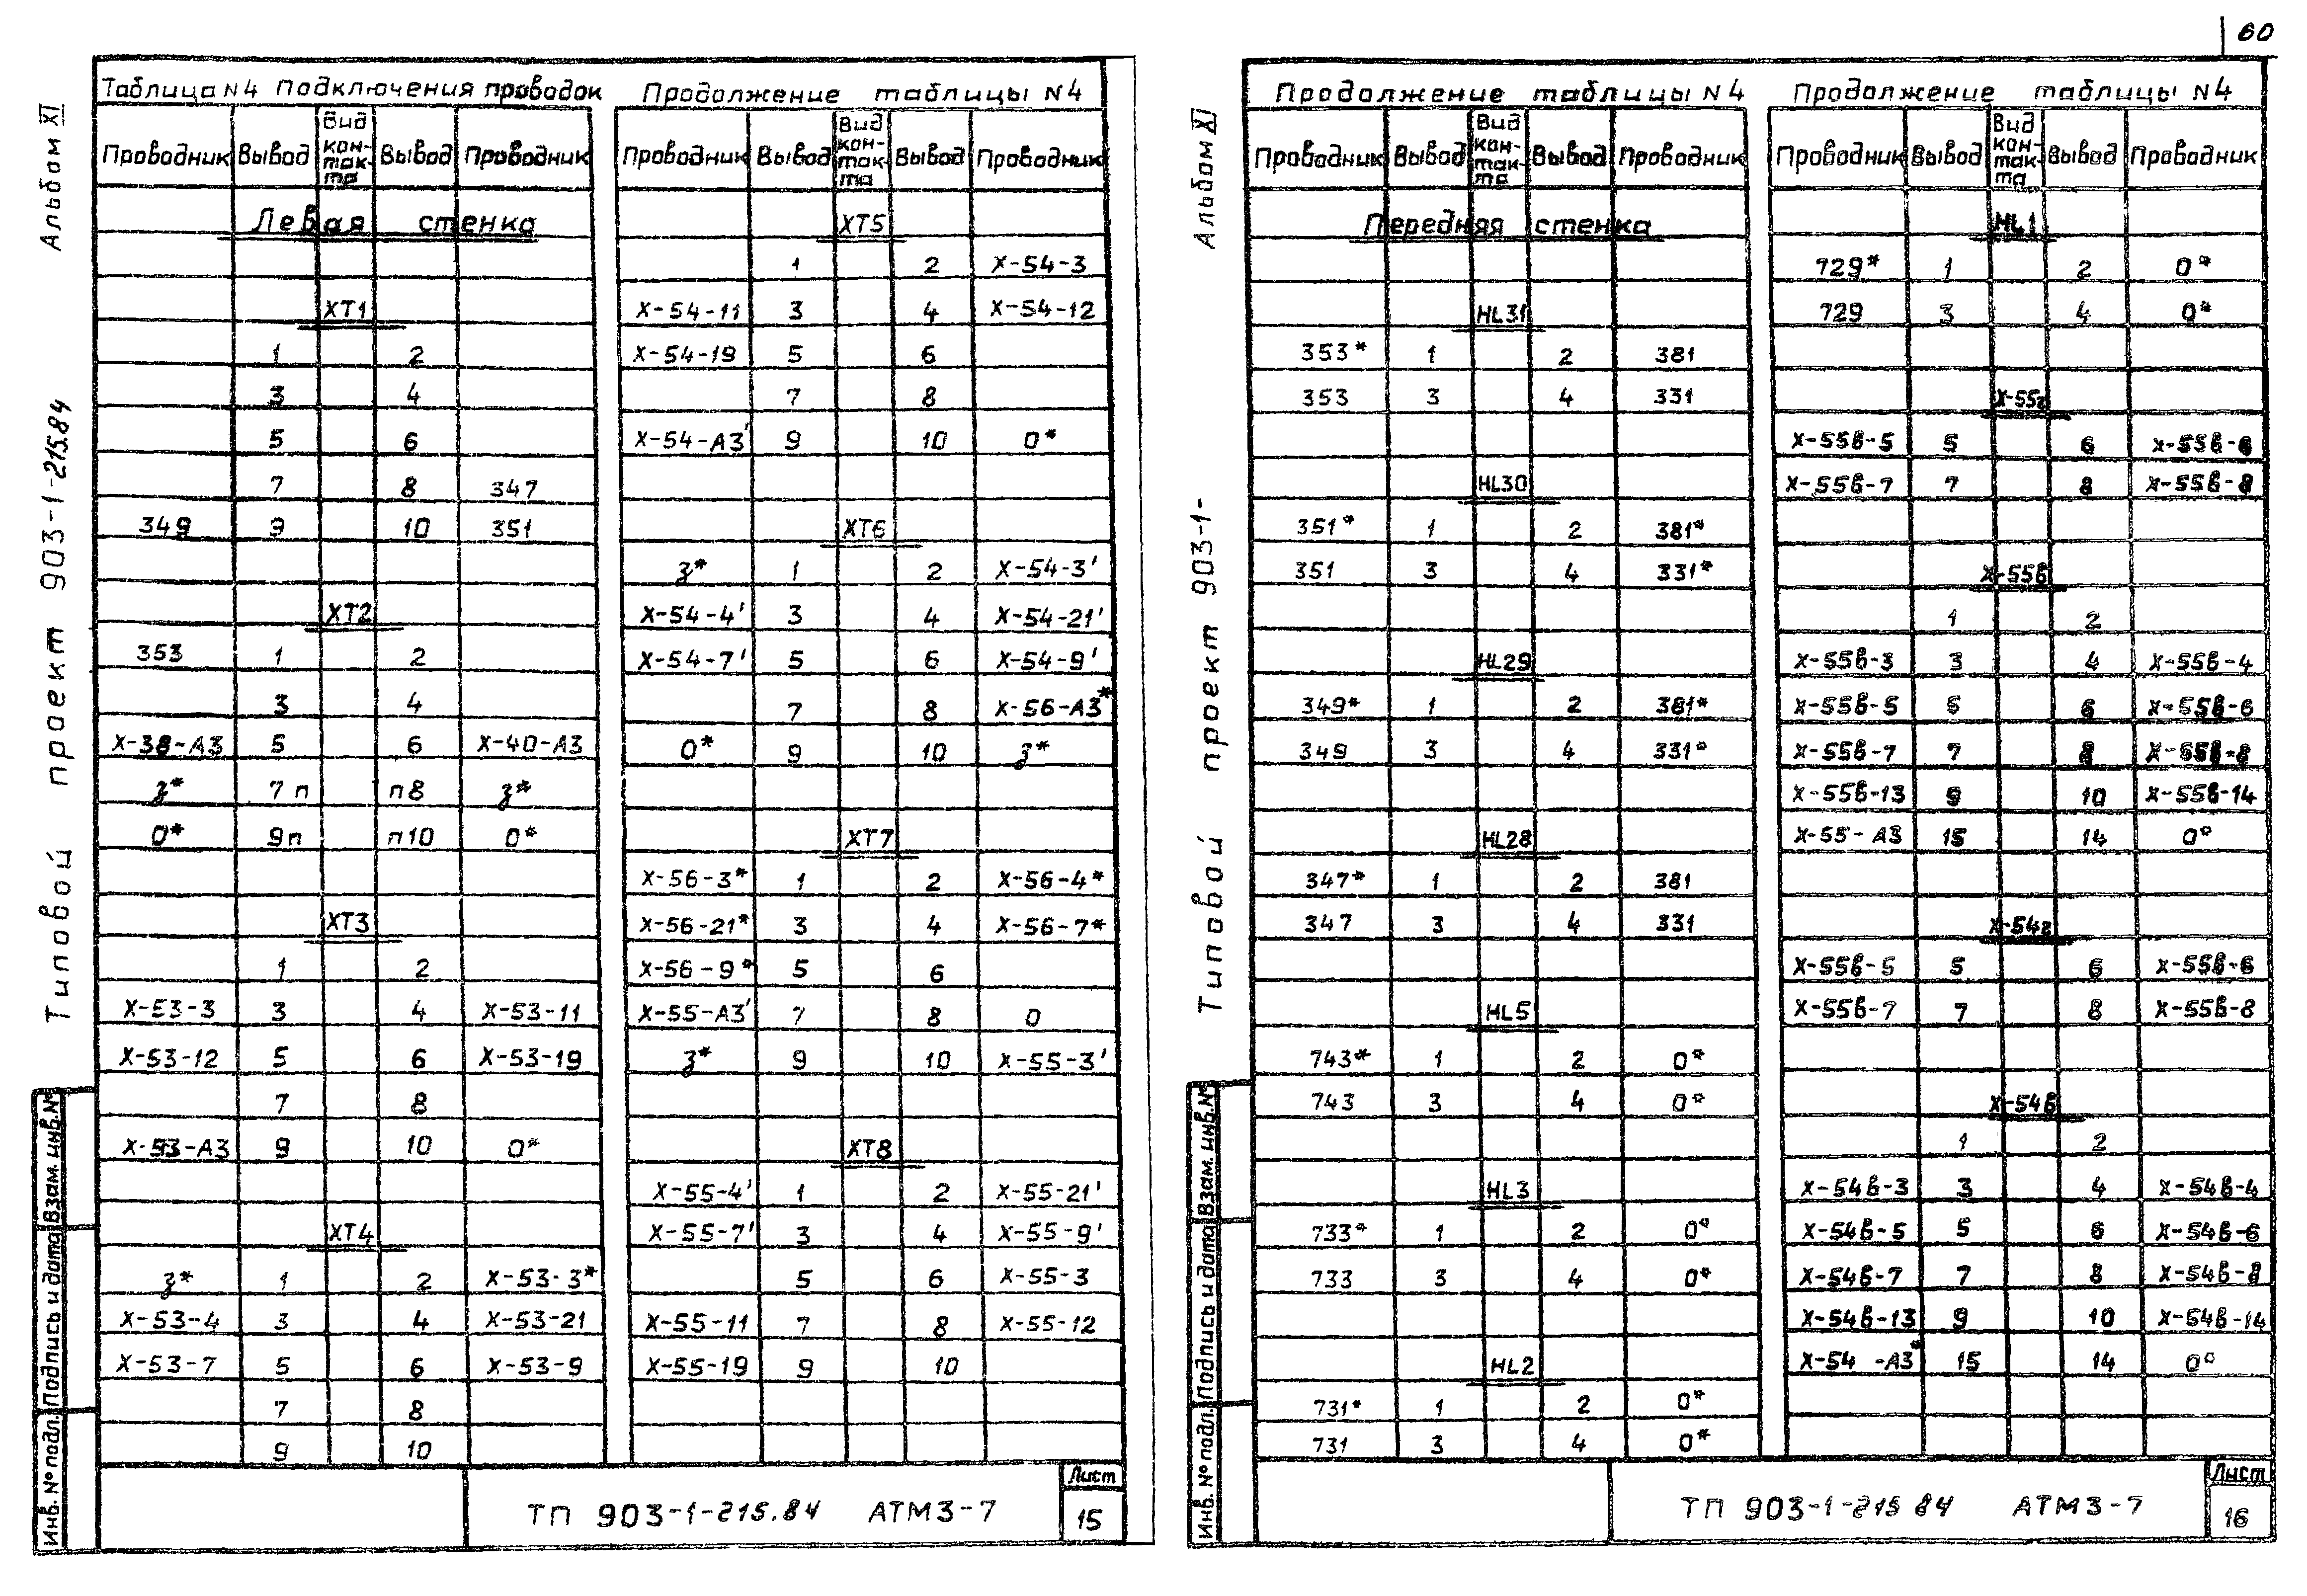 60
Альбом XI
Типовой проект 903-1-215.84
Таблица N4 подключения проводок
Проводник Вывод Вид кон-так-та Вывод Проводник
Левая стенка
XT1
1 2
3 4
5 6
7 8 347
349 9 10 351
XT2
353 1 2
3 4
X-38-А3 5 6 X-40-А3
з* 7п п8 з*
0* 9п п10 0*
XT3
1 2
X-53-3 3 4 X-53-11
X-53-12 5 6 X-53-19
7 8
X-53-А3 9 10 0*
XT4
з* 1 2 X-53-3*
X-53-4 3 4 X-53-21
X-53-7 5 6 X-53-9
7 8
9 10
Продолжение таблицы N4
Проводник Вывод Вид кон-так-та Вывод Проводник
XT5
1 2 X-54-3
X-54-11 3 4 X-54-12
X-54-19 5 6
7 8
X-54-А3' 9 10 0*
XT6
з* 1 2 X-54-3'
X-54-4' 3 4 X-54-21'
X-54-7' 5 6 X-54-9'
7 8 X-56-А3*
0* 9 10 з*
XT7
X-56-3* 1 2 X-56-4*
X-56-21* 3 4 X-56-7*
X-56-9* 5 6
X-55-А3' 7 8 0
з* 9 10 X-55-3'
XT8
X-55-4' 1 2 X-55-21'
X-55-7' 3 4 X-55-9'
5 6 X-55-3
X-55-11 7 8 X-55-12
X-55-19 9 10
Инв. № подл. Подпись и дата Взам. инв. №
ТП 903-1-215.84 АТМ3-7
Лист
15
Альбом XI
Типовой проект 903-1-
Продолжение таблицы N4
Проводник Вывод Вид кон-так-та Вывод Проводник
Передняя стенка
HL31
353* 1 2 381
353 3 4 331
HL30
351* 1 2 381*
351 3 4 331*
HL29
349* 1 2 381*
349 3 4 331*
HL28
347* 1 2 381
347 3 4 331
HL5
743* 1 2 0*
743 3 4 0*
HL3
733* 1 2 0*
733 3 4 0*
HL2
731* 1 2 0*
731 3 4 0*
Продолжение таблицы N4
Проводник Вывод Вид кон-так-та Вывод Проводник
HL1
729* 1 2 0*
729 3 4 0*
X-55г
X-55в-5 5 6 X-55в-6
X-55в-7 7 8 X-55в-8
X-55в
1 2
X-55в-3 3 4 X-55в-4
X-55в-5 5 6 X-55в-6
X-55в-7 7 8 X-55в-8
X-55в-13 9 10 X-55в-14
X-55-А3 15 14 0*
X-54г
X-55в-5 5 6 X-55в-6
X-55в-7 7 8 X-55в-8
X-54в
1 2
X-54в-3 3 4 X-54в-4
X-54в-5 5 6 X-54в-6
X-54в-7 7 8 X-54в-8
X-54в-13 9 10 X-54в-14
X-54 -А3* 15 14 0*
Инв. № подл. Подпись и дата Взам. инв. №
ТП 903-1-215 84 АТМ3-7
Лист
16